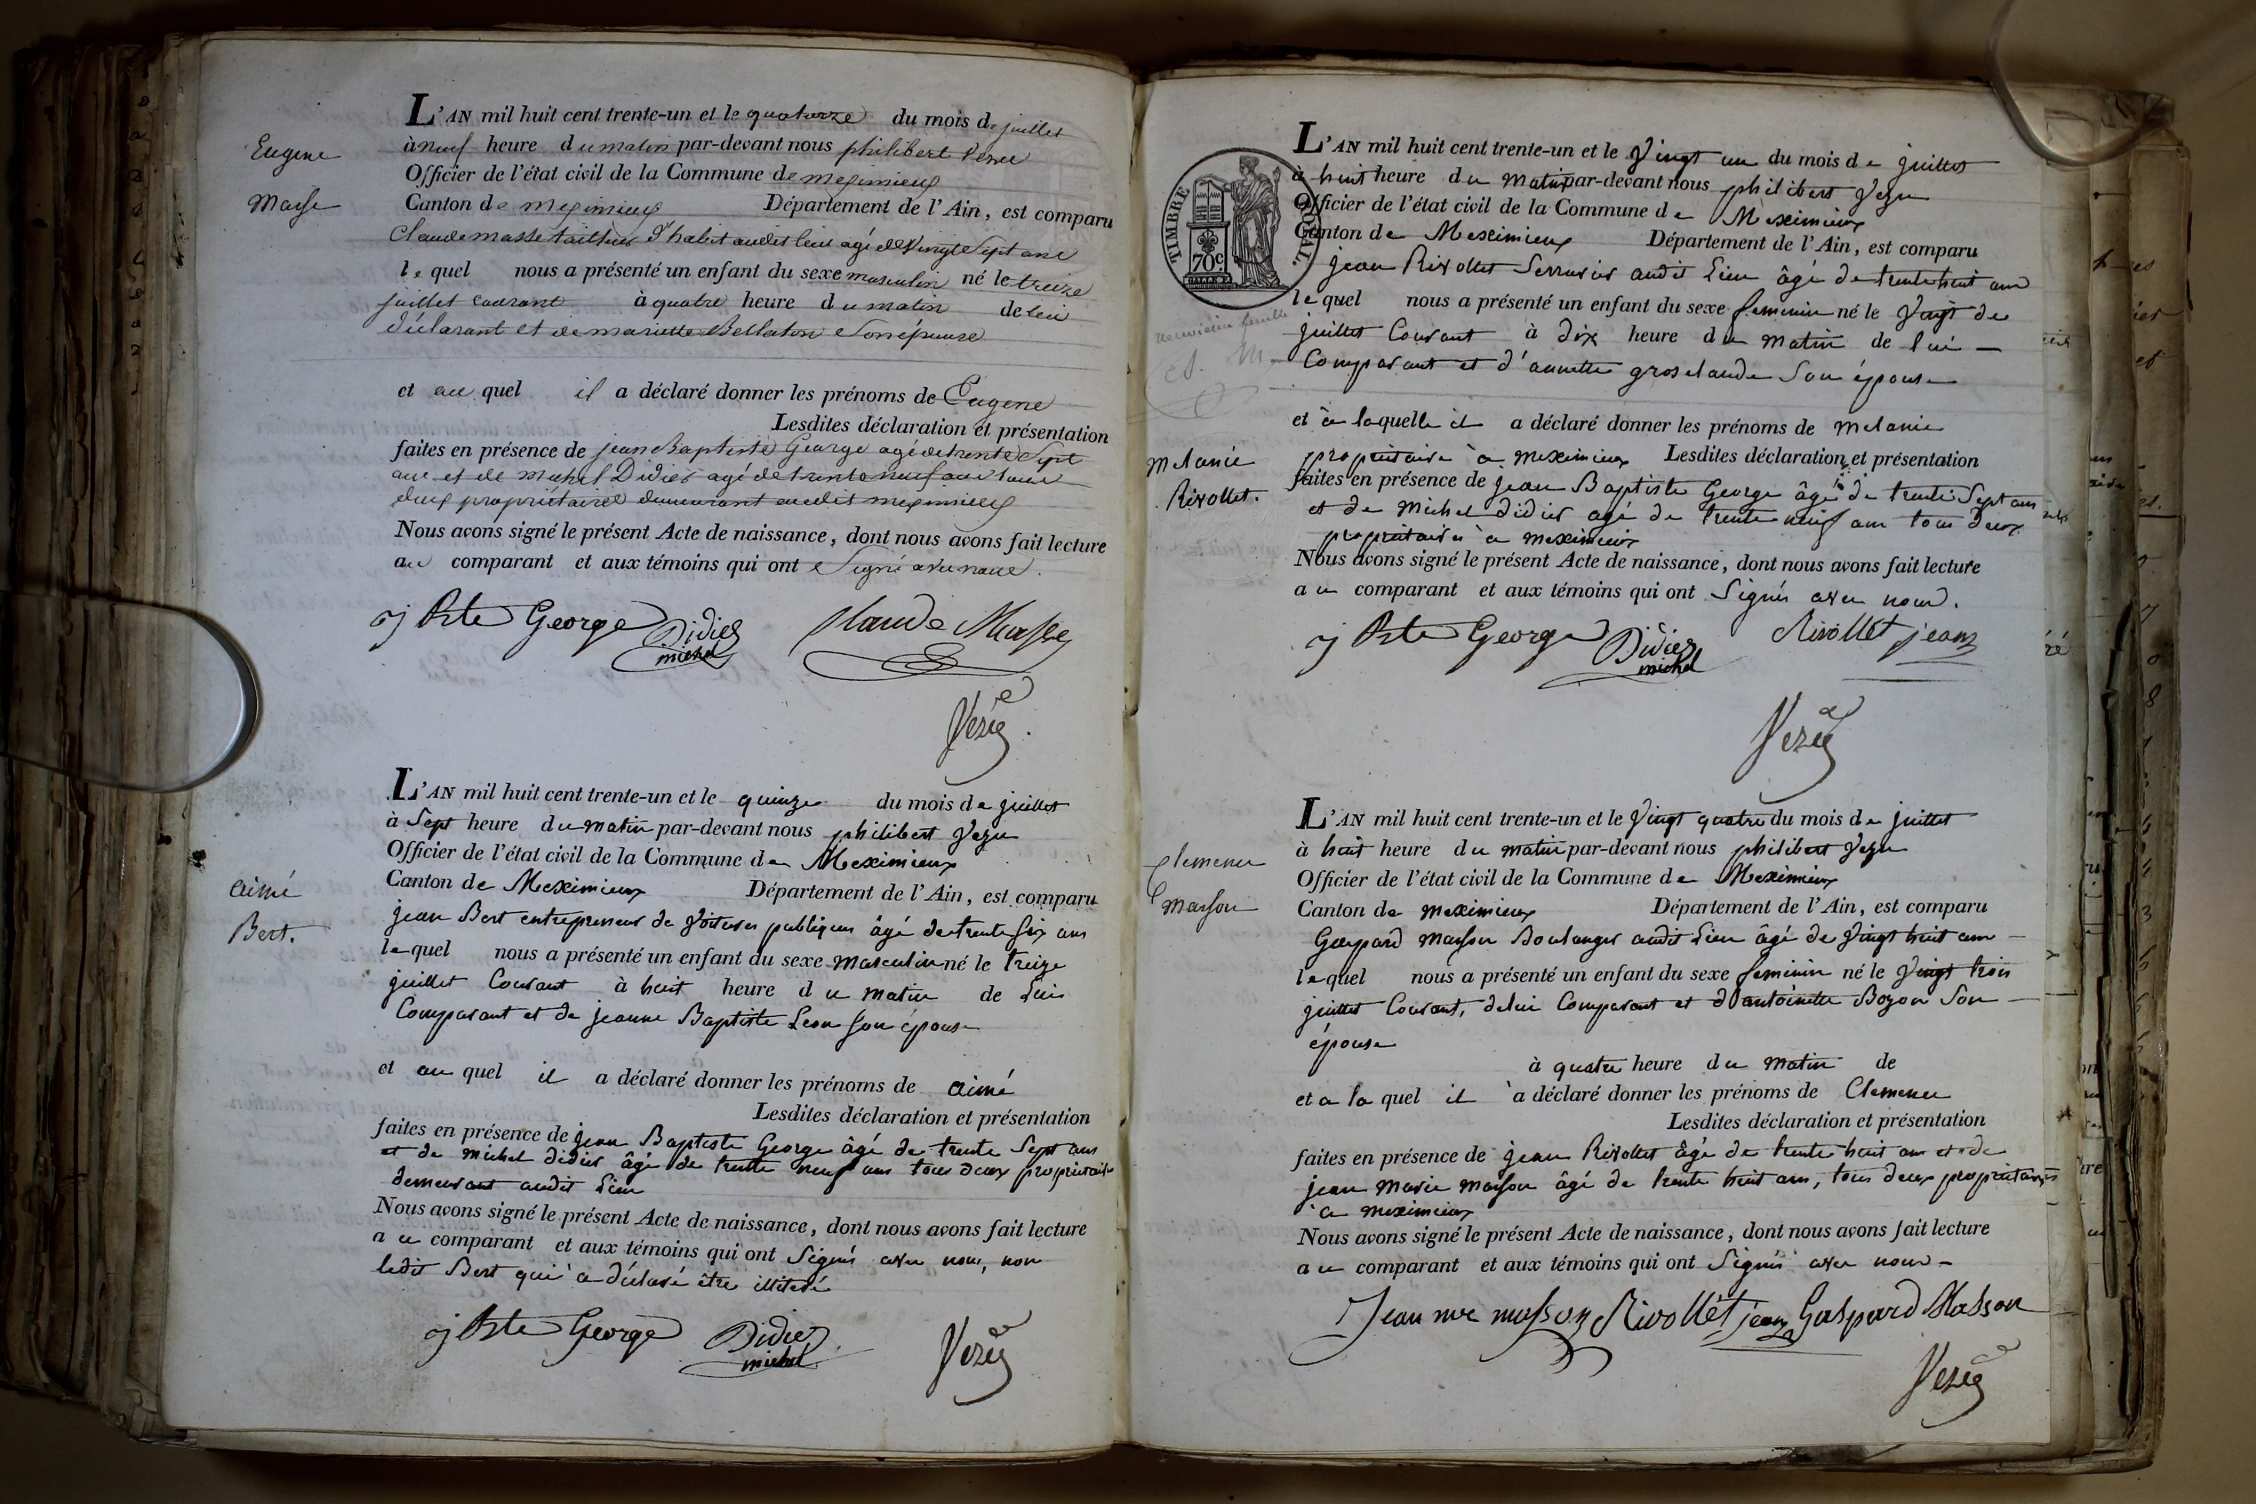 Eugene
Masse
L'AN mil huit cent trente-un et le quatorze du mois de juillet
à neuf heure du matin par-devant nous philibert Vezu
Officier de l'état civil de la Commune de meximieux
Canton de meximieux Département de l'Ain, est comparu
Claude masse tailleur d'habit audit lieu agé de Vingt Sept ans
le quel nous a présenté un enfant du sexe masculin né le treize
juillet courant à quatre heure du matin de lui
déclarant et de mariette Bellaton Son épouse
et au quel il a déclaré donner les prénoms de Eugene
Lesdites déclaration et présentation
faites en présence de jean Baptiste George agé de trente Sept
ans et de michel Didier agé de trente neuf ans tous
deux propriétaires demeurant audit meximieux
Nous avons signé le présent Acte de naissance, dont nous avons fait lecture
au comparant et aux témoins qui ont Signé avec nous.
j Bte George Didier michel Claude Masse
Vezu
aimé
Bert.
L'AN mil huit cent trente-un et le quinze du mois de juillet
à Sept heure du matin par-devant nous philibert Vezu
Officier de l'état civil de la Commune de Meximieux
Canton de Meximieux Département de l'Ain, est comparu
jean Bert entrepreneur de Voitures publiques âgé de trente six ans
lequel nous a présenté un enfant du sexe masculin né le treize
juillet Courant à huit heure du matin de Lui
Comparant et de jeanne Baptiste Leon son épouse
et au quel il a déclaré donner les prénoms de aimé
Lesdites déclaration et présentation
faites en présence de jean Baptiste George âgé de trente Sept ans
et de michel didier âgé de trente neuf ans tous deux propriétaires
demeurant audit Lieu
Nous avons signé le présent Acte de naissance, dont nous avons fait lecture
au comparant et aux témoins qui ont Signés avec nous, non
ledit Bert qui a déclaré être illitéré
j Bte George Didier michel Vezu
TIMBRE ROYAL
70c
L'AN mil huit cent trente-un et le Vingt un du mois de juillet
à huit heure du matin par-devant nous philibert Vezu
Officier de l'état civil de la Commune de Meximieux
Canton de Meximieux Département de l'Ain, est comparu
jean Rivollet Serrurier audit Lieu âgé de trente huit ans
lequel nous a présenté un enfant du sexe feminin né le Vingt de
juillet Courant à dix heure du matin de lui
Comparant et d'annette groselande Son épouse
et à laquelle il a déclaré donner les prénoms de melanie
melanie
Rivollet.
propriétaire à meximieux Lesdites déclaration et présentation
faites en présence de jean Baptiste George âgé de trente Sept ans
et de Michel didier agé de trente neuf ans tous deux
propriétaires à meximieux
Nous avons signé le présent Acte de naissance, dont nous avons fait lecture
au comparant et aux témoins qui ont Signés avec nous.
j Bte George Didier michel Rivollet jean
Vezu
Clemence
Masson
L'AN mil huit cent trente-un et le Vingt quatre du mois de juillet
à huit heure du matin par-devant nous philibert Vezu
Officier de l'état civil de la Commune de Meximieux
Canton de meximieux Département de l'Ain, est comparu
Gaspard masson Boulanger audit Lieu âgé de Vingt huit ans
lequel nous a présenté un enfant du sexe feminin né le Vingt trois
juillet Courant, de lui Comparant et d'antoinette Bozon Son
épouse
à quatre heure du matin de
et a la quel il a déclaré donner les prénoms de Clemence
Lesdites déclaration et présentation
faites en présence de jean Rivollet âgé de trente huit ans et de
jean marie masson âgé de trente huit ans, tous deux propriétaires
à meximieux
Nous avons signé le présent Acte de naissance, dont nous avons fait lecture
au comparant et aux témoins qui ont Signés avec nous
Jean me masson Rivollet jean Gaspard Masson
Vezu